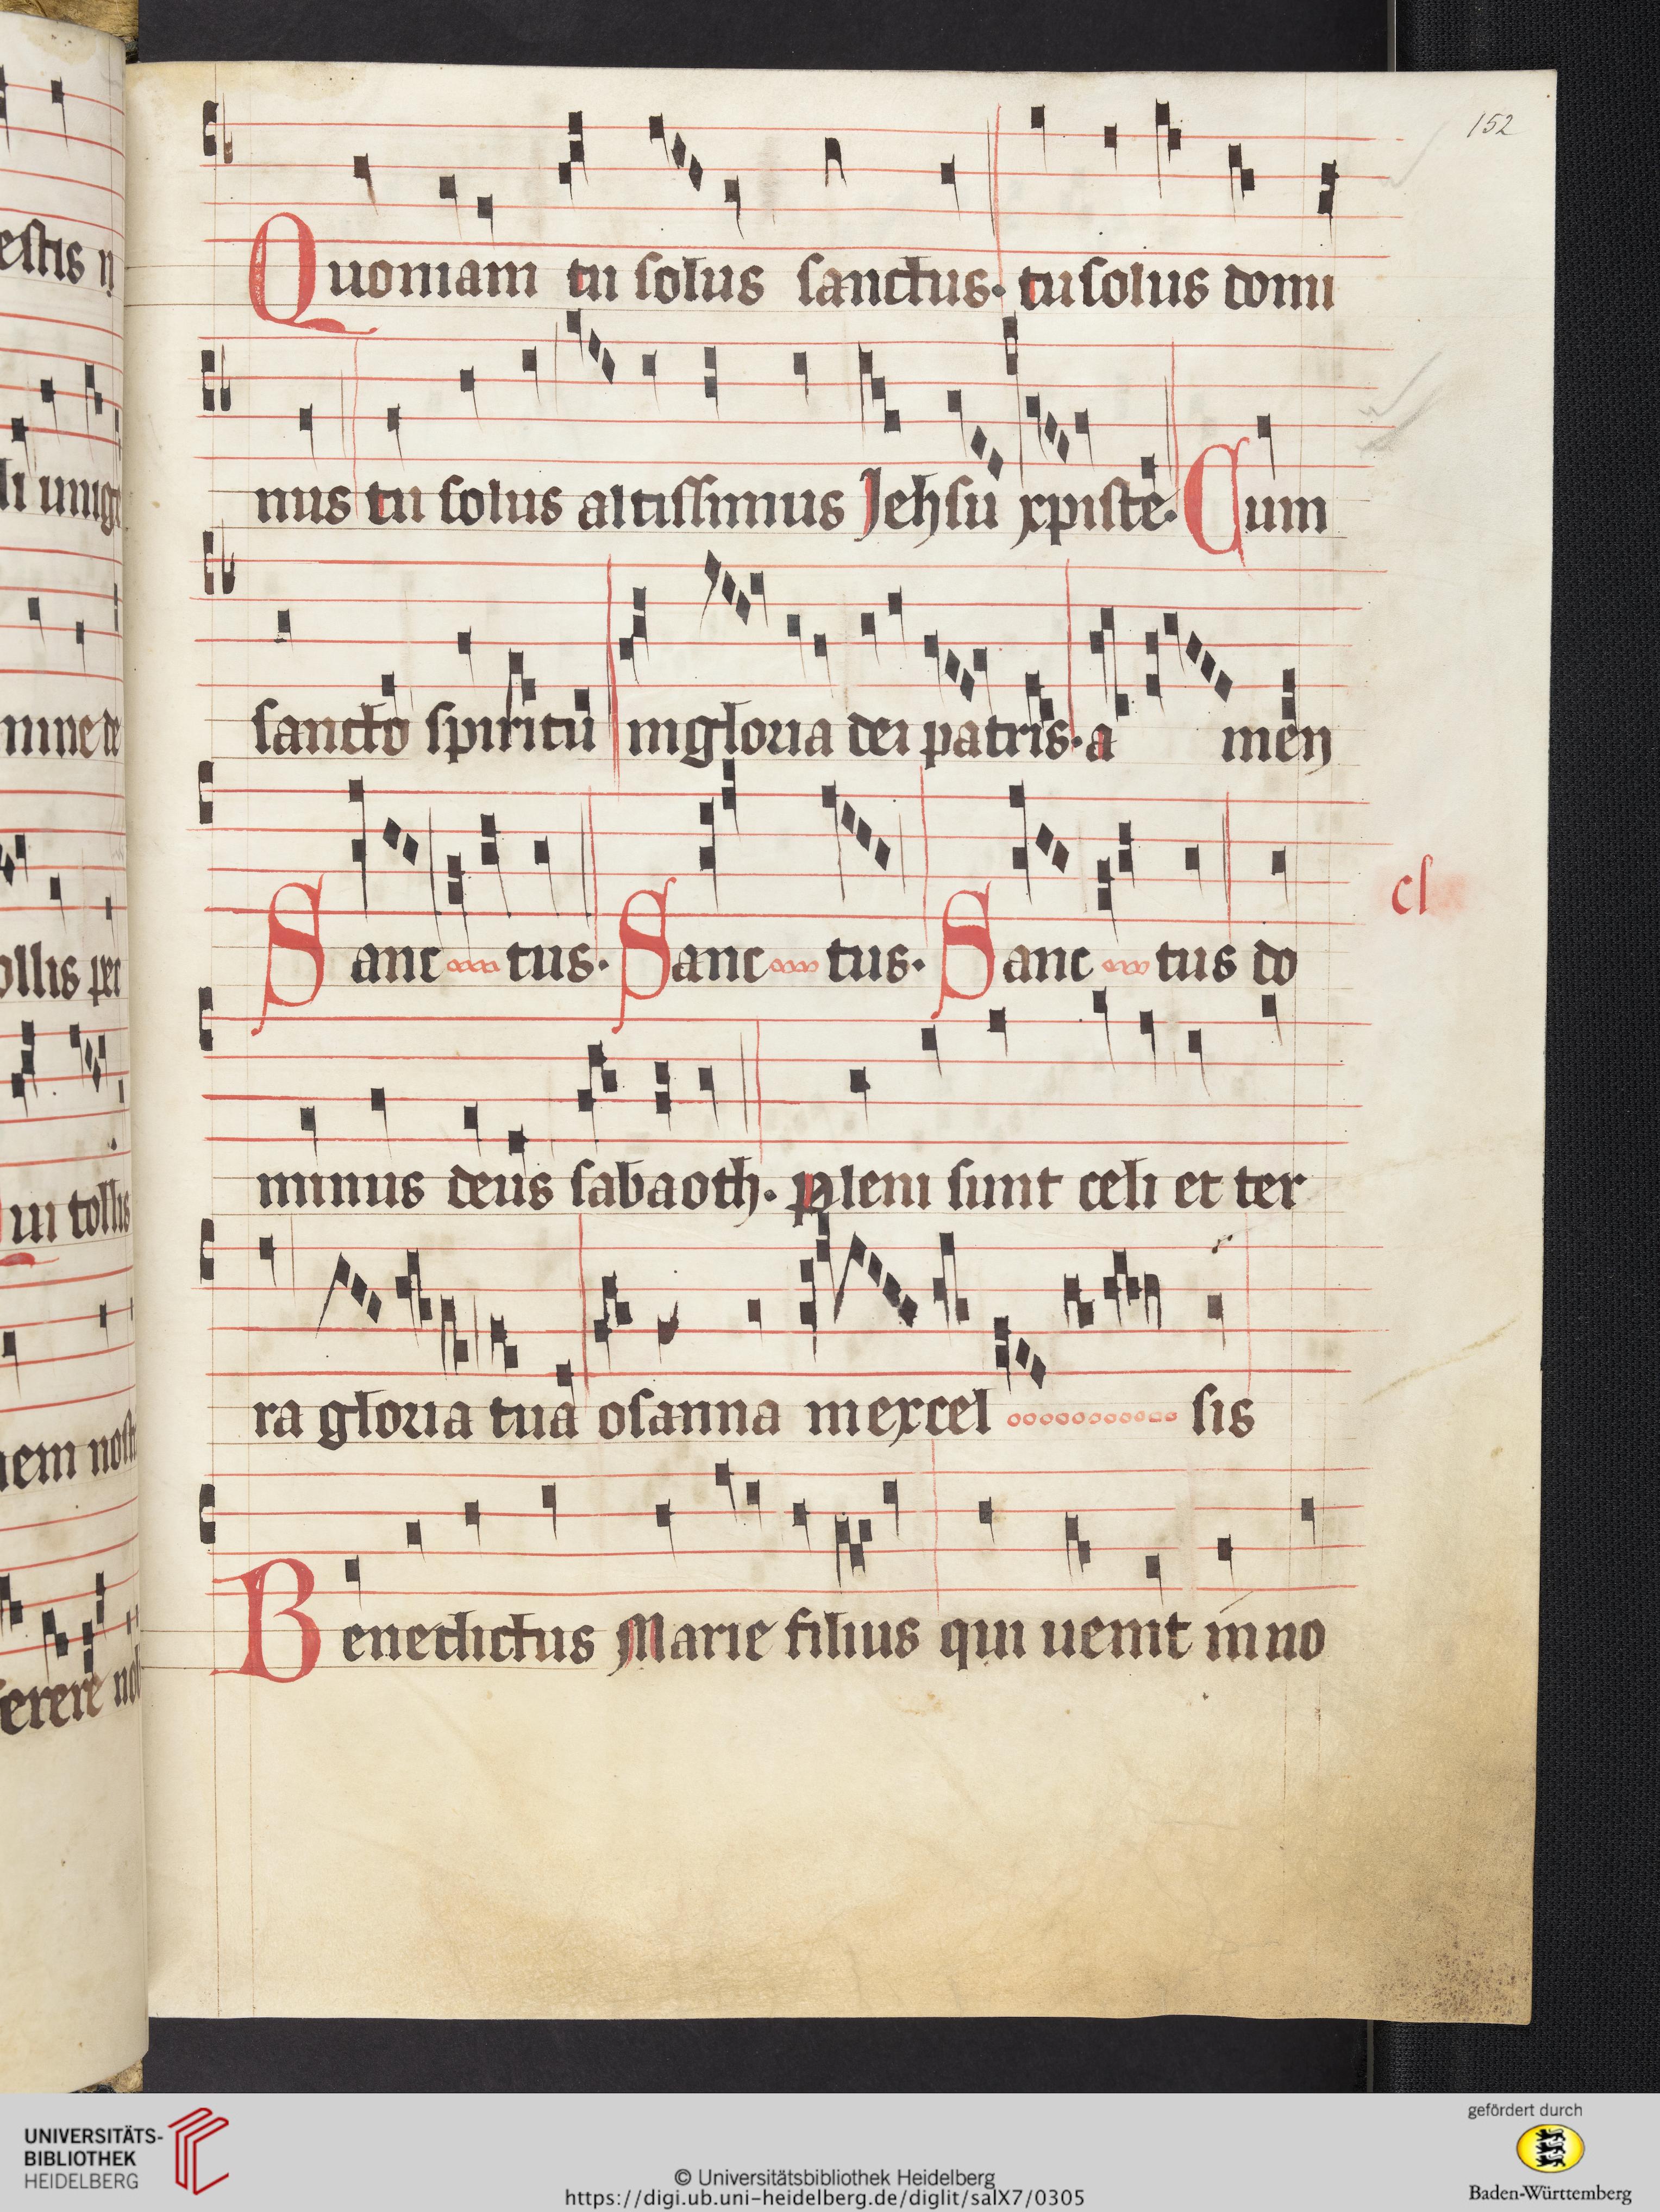 152
Quoniam tu solus sanctus· tu solus domi
nus tu solus altissimus Jehsu xpiste· Cum
sancto spiritu in gloria dei patris· a men
Sanc tus· Sanc tus· Sanc tus do
cl
minus deus sabaoth· Pleni sunt celi et ter
ra gloria tua osanna in excel sis
Benedictus Marie filius qui uenit in no
estis
li unig
mine de
ollis per
ui tollis
nem nost
UNIVERSITÄTS-
BIBLIOTHEK
HEIDELBERG
© Universitätsbibliothek Heidelberg
https://digi.ub.uni-heidelberg.de/diglit/salX7/0305
gefördert durch
Baden-Württemberg